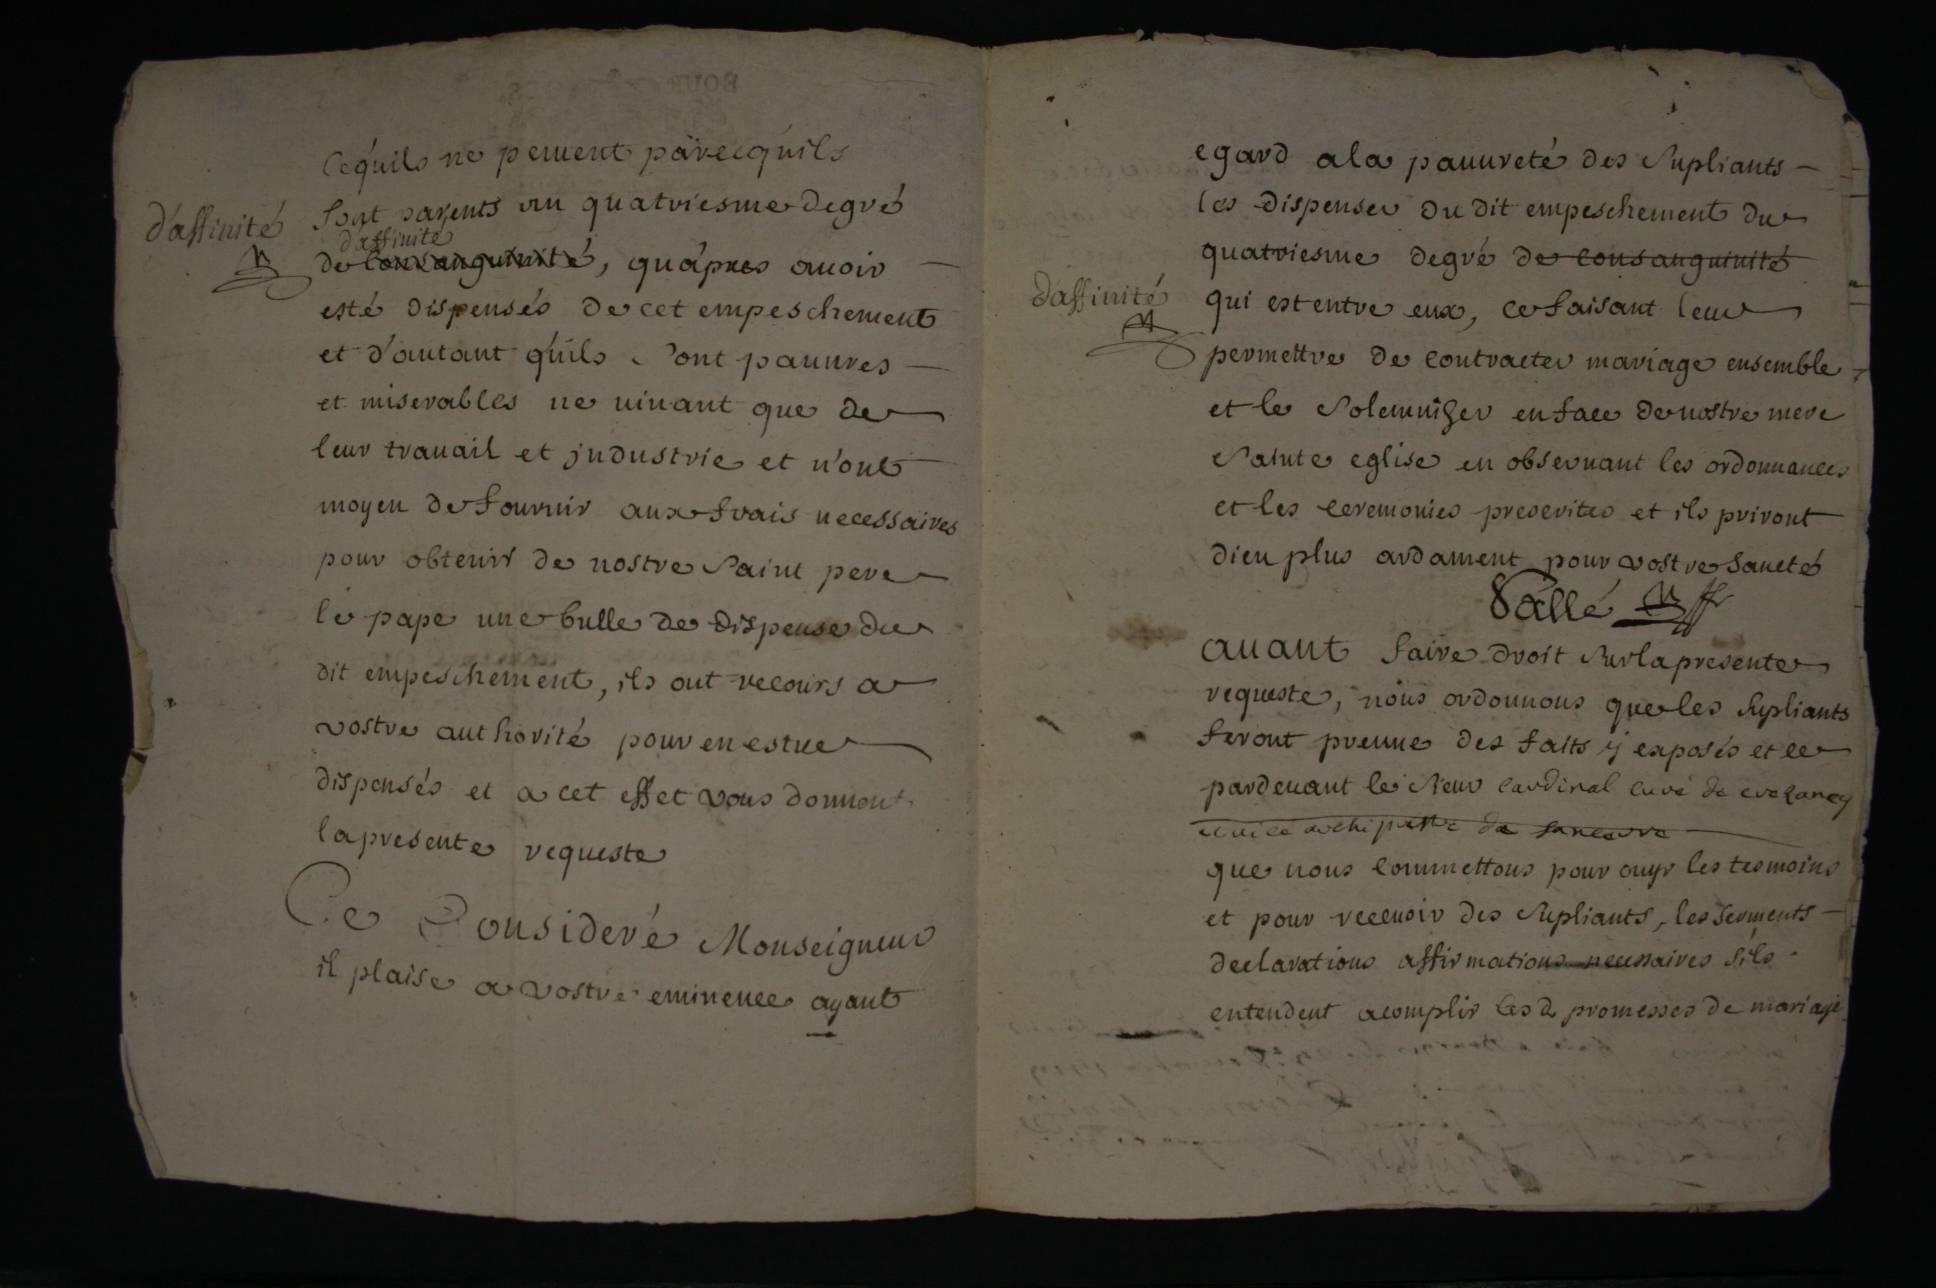 cequils ne peuuent parcequ'ils
sont parents au quatriesme degré
d'affinité
d'affinité
de consanguinité, qu'apres auoir
esté dispensés de cet empeschement
et d'autant qu'ils sont pauures
et miserables ne uiuant que de
leur trauail et industrie et n'ont
moyen de fournir aux frais necessaires
pour obtenir de nostre saint pere
le pape une bulle de dispense du
dit empeschement, ils ont recours a
vostre authorité pour en estre
dispensés et a cet effet vous donnent
la presente requeste
Ce Consideré Monseigneur
il plaise a vostre eminence ayant
egard a la pauureté des supliants
les dispenser du dit empeschement du
quatriesme degré de consanguinité
d'affinité
qui est entre eux, ce faisant leur
permettre de contracter mariage ensemble
et le solemnizer en face de nostre mere
sainte eglise en obseruant les ordonnances
et les ceremonies prescrites et ils priront
dieu plus ardament pour vostre santé
Sallé
auant faire droit sur la presente
requeste, nous ordonnons que les supliants
feront preuue des faits y exposés et ce
pardeuant le sieur cardinal curé de crezancy
archiprestre de sancerre
que nous commettons pour ouyr les tesmoins
et pour receuoir des supliants, les serments
declarations affirmations necessaires s'ils
entendent acomplir lesd promesses de mariage